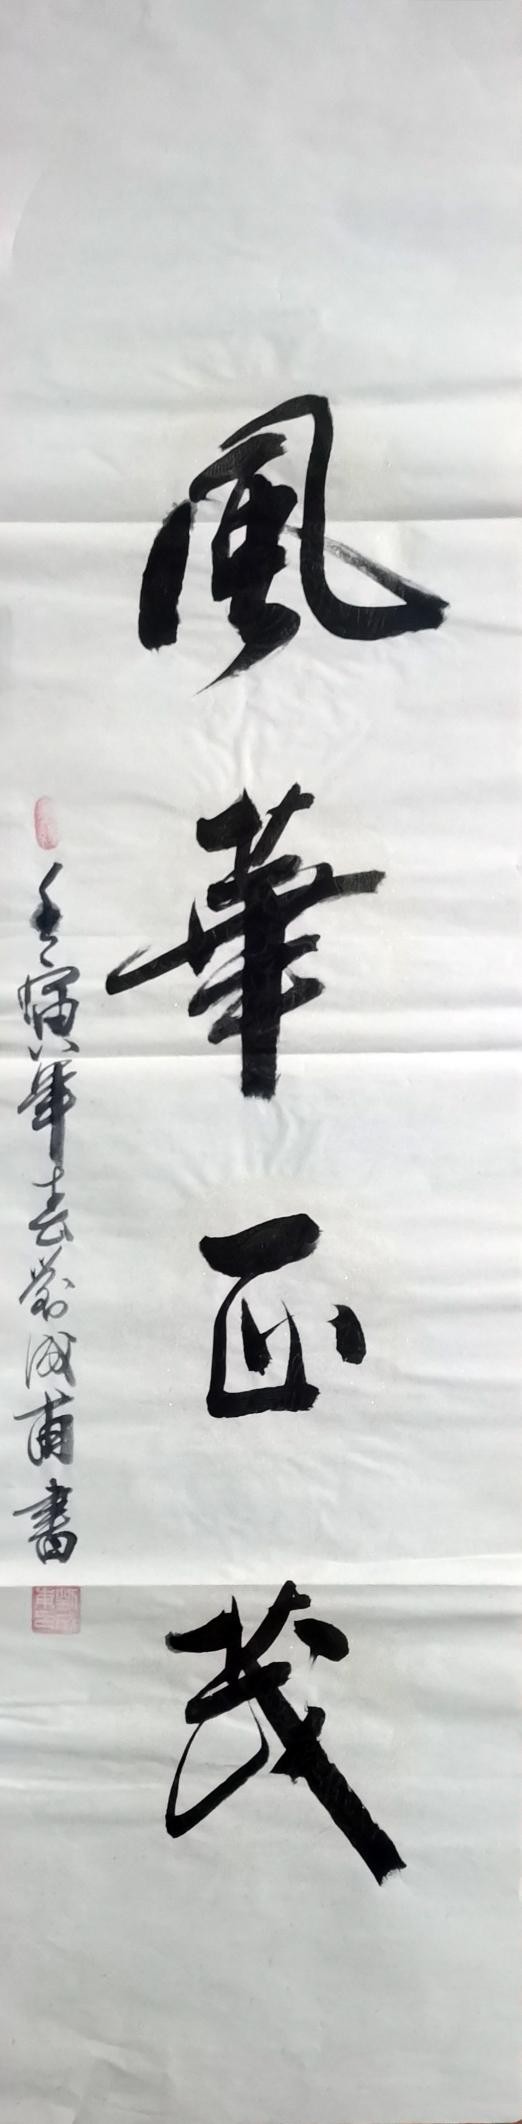 風華正茂
壬寅年春劉成甫書